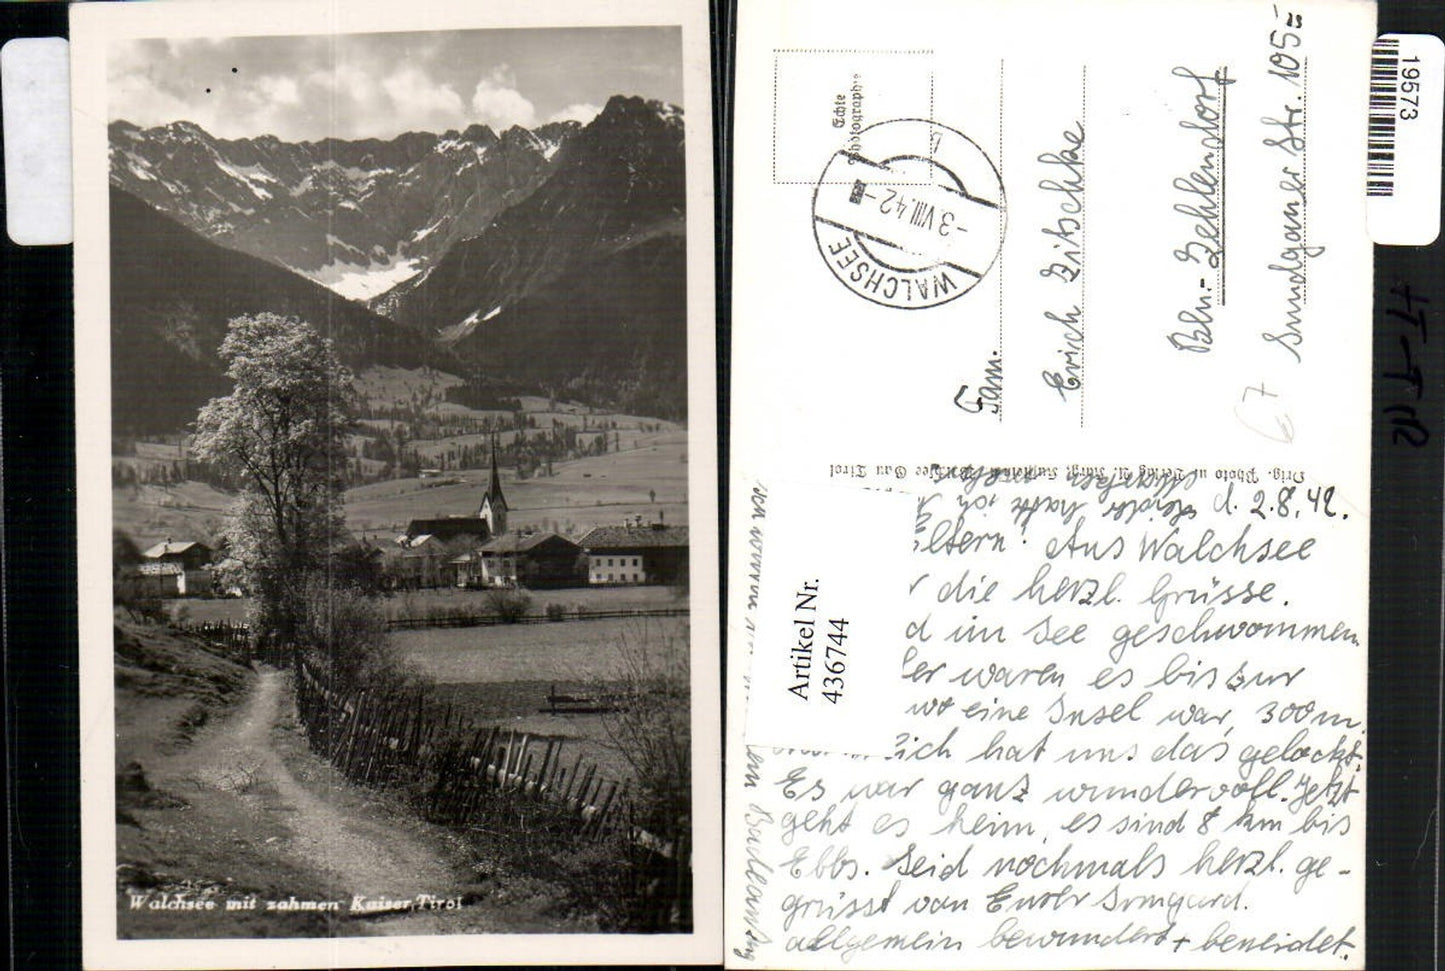 Walchsee mit zahmen Kaiser, Tirol
19573
Echte
Photographie
WALCHSEE
-3.VIII.42-
Fam.
Erich Zitschke
Bln.- Zehlendorf
Sundgauer Str. 105
Orig. Photo u. Verlag A. Gau Tirol
leider hatte ich
d. 2.8.42.
ltern! Aus Walchsee
die herzl. Grüsse.
d im See geschwommen
ler waren es bis zur
wo eine Insel war, 300m.
ich hat uns das gelockt.
Es war ganz wundervoll. Jetzt
geht es heim, es sind 8 km bis
Ebbs. Seid nochmals herzl. ge-
grüsst von Eurer Irmgard.
allgemein bewundert + beneidet.
Badeanzug
Artikel Nr.
436744